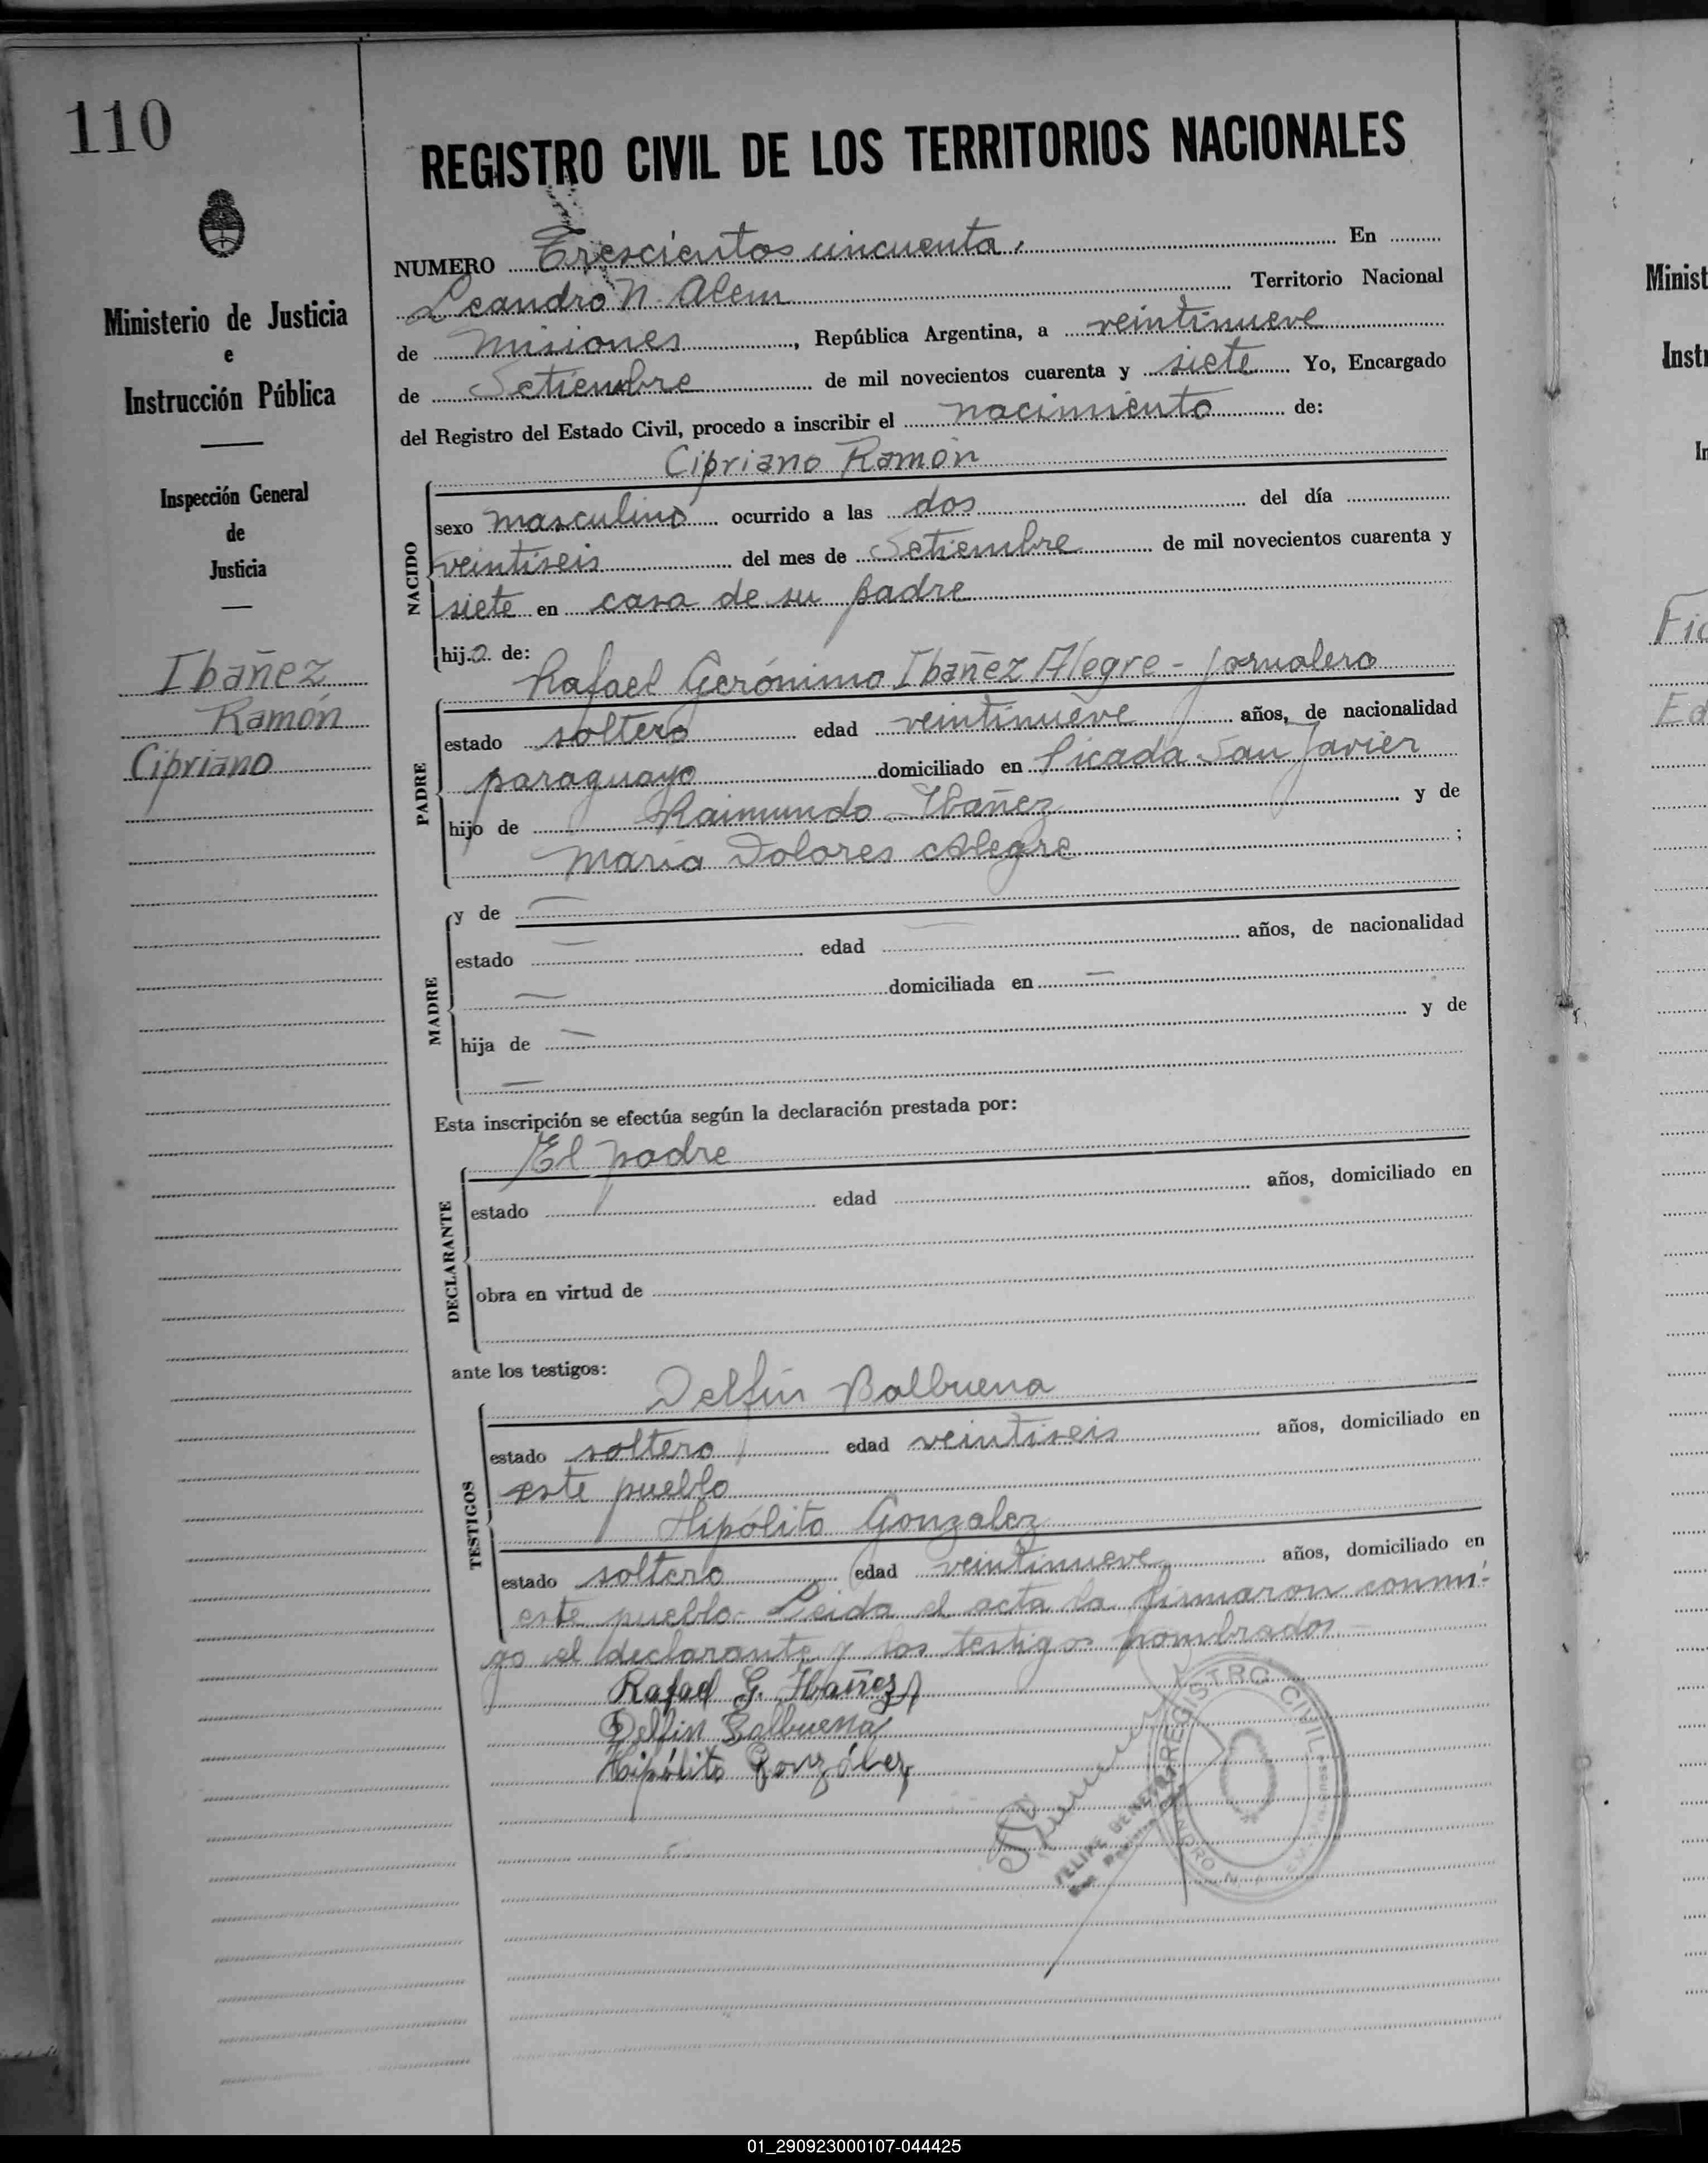 110
REGISTRO CIVIL DE LOS TERRITORIOS NACIONALES
Ministerio de Justicia
e
Instrucción Pública
Inspección General
de
Justicia
Ibañez
Ramón
Cipriano
NUMERO Trescientos cincuenta. En
Leandro N. Alem Territorio Nacional
de Misiones, República Argentina, a veintinueve
de Setiembre de mil novecientos cuarenta y siete Yo, Encargado
del Registro del Estado Civil, procedo a inscribir el nacimiento de:
Cipriano Ramón
NACIDO
sexo masculino ocurrido a las dos del día
veintiseis del mes de Setiembre de mil novecientos cuarenta y
siete en casa de su padre
hijo de:
Rafael Gerónimo Ibañez Alegre - jornalero
PADRE
estado soltero edad veintinueve años, de nacionalidad
paraguayo domiciliado en Picada San Javier
hijo de Raimundo Ibañez y de
María Dolores Alegre ;
MADRE
y de —
estado — edad — años, de nacionalidad
— domiciliada en —
hija de — y de
—
Esta inscripción se efectúa según la declaración prestada por:
El padre
DECLARANTE
estado edad años, domiciliado en
obra en virtud de
ante los testigos:
Delfin Balbuena
TESTIGOS
estado soltero edad veintiseis años, domiciliado en
este pueblo
Hipólito Gonzalez
estado soltero edad veintinueve años, domiciliado en
este pueblo- Leida el acta la firmaron conmi-
go el declarante y los testigos nombrados
Rafael G. Ibañez A
Delfin Balbuena
Hipólito González
REGISTRO CIVIL
FELIPE
Minist
Instr